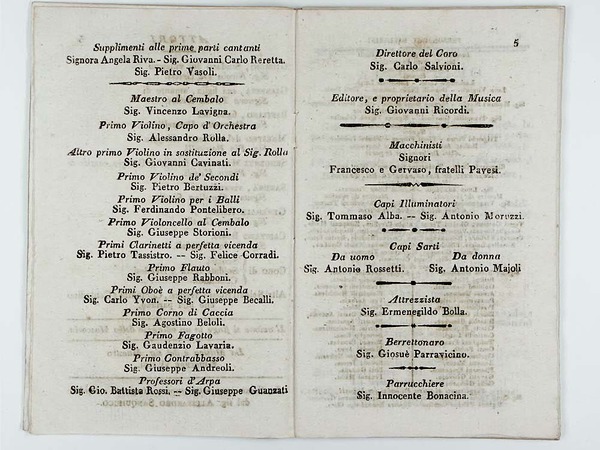 Supplimenti alle prime parti cantanti
Signora Angela Riva. - Sig. Giovanni Carlo Beretta.
Sig. Pietro Vasoli.
Maestro al Cembalo
Sig. Vincenzo Lavigna.
Primo Violino, Capo d'Orchestra
Sig. Alessandro Rolla.
Altro primo Violino in sostituzione al Sig. Rolla
Sig. Giovanni Cavinati.
Primo Violino de' Secondi
Sig. Pietro Bertuzzi.
Primo Violino per i Balli
Sig. Ferdinando Pontelibero.
Primo Violoncello al Cembalo
Sig. Giuseppe Storioni.
Primi Clarinetti a perfetta vicenda
Sig. Pietro Tassistro. -- Sig. Felice Corradi.
Primo Flauto
Sig. Giuseppe Rabboni.
Primi Oboè a perfetta vicenda
Sig. Carlo Yvon. -- Sig. Giuseppe Becalli.
Primo Corno di Caccia
Sig. Agostino Beloli.
Primo Fagotto
Sig. Gaudenzio Lavaria.
Primo Contrabbasso
Sig. Giuseppe Andreoli.
Professori d'Arpa
Sig. Gio. Battista Rossi. -- Sig. Giuseppe Guanzati
5
Direttore del Coro
Sig. Carlo Salvioni.
Editore, e proprietario della Musica
Sig. Giovanni Ricordi.
Macchinisti
Signori
Francesco e Gervaso, fratelli Pavesi.
Capi Illuminatori
Sig. Tommaso Alba. -- Sig. Antonio Moruzzi.
Capi Sarti
Da uomo Da donna
Sig. Antonio Rossetti. Sig. Antonio Majoli
Attrezzista
Sig. Ermenegildo Bolla.
Berrettonaro
Sig. Giosuè Parravicino.
Parrucchiere
Sig. Innocente Bonacina.